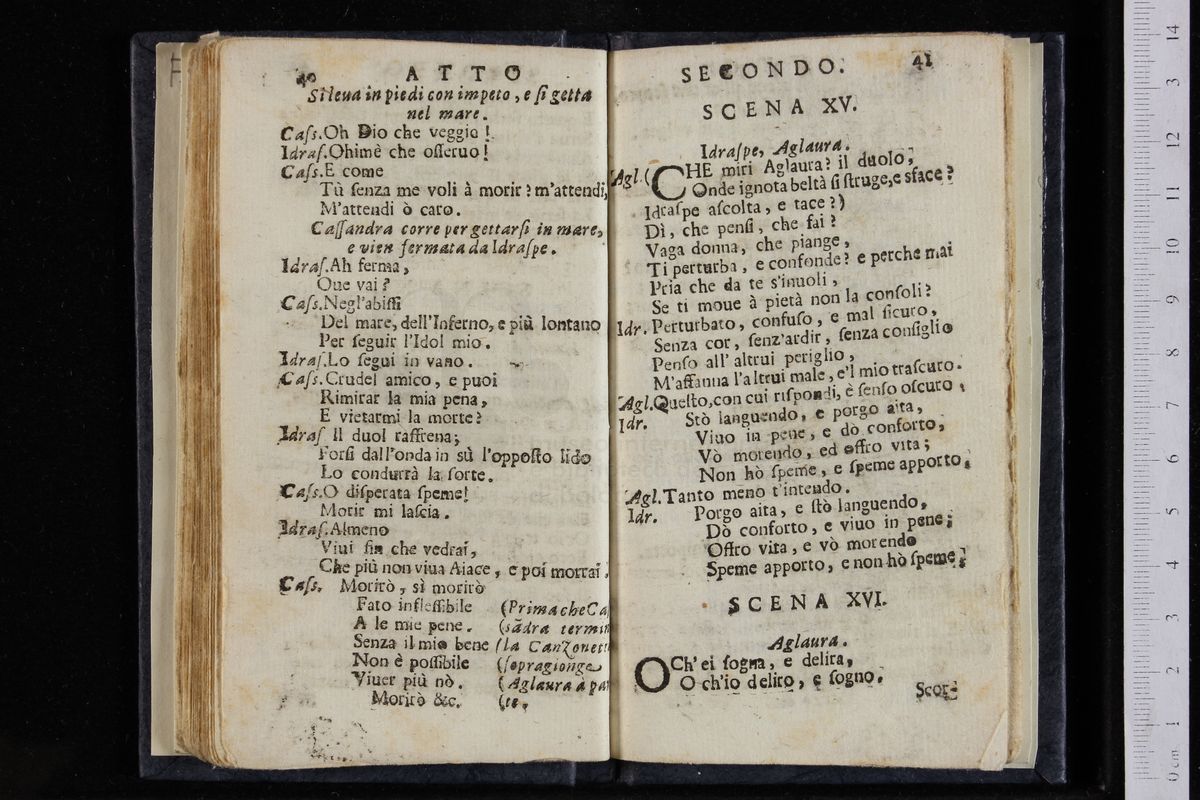 40 ATTO
Si leua in piedi con impeto, e ſi getta
nel mare.
Caſſ. Oh Dio che veggio!
Idraſ. Ohimè che oſſeruo!
Caſſ. E come
Tù ſenza me voli à morir? m'attendi,
M'attendi ò caro.
Caſſandra corre per gettarſi in mare,
e vien fermata da Idraſpe.
Idraſ. Ah ferma,
Oue vai?
Caſſ. Negl'abiſſi
Del mare, dell'Inferno, e più lontano
Per ſeguir l'Idol mio.
Idraſ. Lo ſegui in vano.
Caſſ. Crudel amico, e puoi
Rimirar la mia pena,
E vietarmi la morte?
Idraſ Il duol raffrena;
Forſi dall'onda in sù l'oppoſto lido
Lo condurrà la ſorte.
Caſſ. O diſperata ſpeme!
Morir mi laſcia.
Idraſ. Almeno
Viui fin che vedrai,
Che più non viua Aiace, e poi morrai.
Caſſ. Morirò, sì morirò
Fato infleſſibile (Prima che Ca
A le mie pene. (sãdra termin
Senza il mio bene (la Canzonett
Non è poſſibile (ſopragionge
Viuer più nò. (Aglaura à par
Morirò &c. (te.
SECONDO. 41
SCENA XV.
Idraſpe, Aglaura.
Agl. (CHE miri Aglaura? il duolo,
Onde ignota beltà ſi ſtruge, e sface?
Idraſpe aſcolta, e tace?)
Dì, che penſi, che fai?
Vaga donna, che piange,
Ti perturba, e confonde? e perche mai
Pria che da te s'inuoli,
Se ti moue à pietà non la conſoli?
Idr. Perturbato, confuſo, e mal ſicuro,
Senza cor, ſenz'ardir, ſenza conſiglio
Penſo all' altrui periglio,
M'affanna l'altrui male, e'l mio traſcuro.
Agl. Queſto, con cui riſpondi, è ſenſo oſcuro.
Idr. Stò languendo, e porgo aita,
Viuo in pene, e dò conforto,
Vò morendo, ed offro vita;
Non hò ſpeme, e ſpeme apporto.
Agl. Tanto meno t'intendo.
Idr. Porgo aita, e ſtò languendo,
Dò conforto, e viuo in pene;
Offro vita, e vò morendo
Speme apporto, e non hò ſpeme.
SCENA XVI.
Aglaura.
OCh' ei ſogna, e delira,
O ch'io deliro, e ſogno.
Scor-